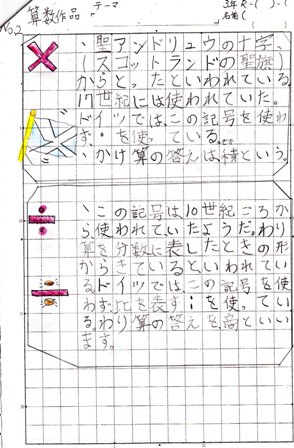 算数作品
テーマ
3年 R-( )-( )
名前( )
No.2
×
、聖アンドリュウの十字、
(スコットランドの聖旗)
からとったといわれている。
17世紀には使われていた。
ドイツでは、この記号を使わ
ず・を使っている。
、かけ算の答えは、積という。
÷
、この記号は、10世紀ころか
ら使われていたようだ。わり
算を分数に表したときの形
からきているといわれてい
るドイツではこの記号を使
わず、比を表す:を使ってい
る。わり算の答えを、商といい
ます。